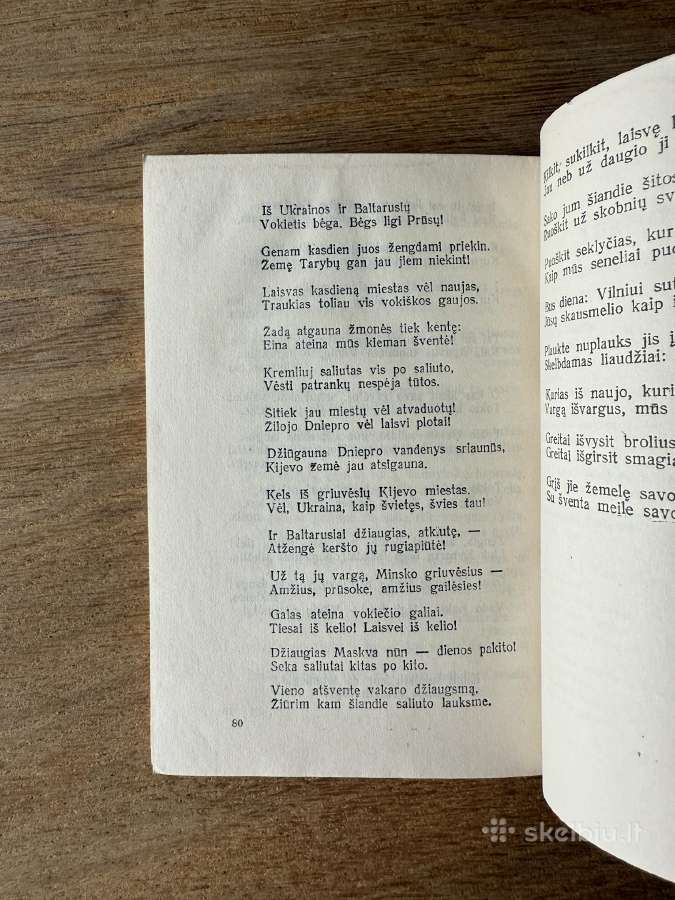 Iš Ukrainos ir Baltarusių
Vokietis bėga. Bėgs ligi Prūsų!
Genam kasdien juos žengdami priekin.
Žemę Tarybų gan jau jiem niekint!
Laisvas kasdieną miestas vėl naujas,
Traukias toliau vis vokiškos gaujos.
Žadą atgauna žmonės tiek kentę:
Eina ateina mūs kieman šventė!
Kremliuj saliutas vis po saliuto,
Vėsti patrankų nespėja tūtos.
Šitiek jau miestų vėl atvaduotų!
Žilojo Dniepro vėl laisvi plotai!
Džiūgauna Dniepro vandenys sriaunūs,
Kijevo žemė jau atsigauna.
Kels iš griuvėsių Kijevo miestas.
Vėl, Ukraina, kaip švietęs, švies tau!
Ir Baltarusiai džiaugias, atkutę, —
Atžengė keršto jų rugiapiūtė!
Už tą jų vargą, Minsko griuvėsius —
Amžius, prūsoke, amžius gailėsies!
Galas ateina vokiečio galiai.
Tiesai iš kelio! Laisvei iš kelio!
Džiaugias Maskva nūn — dienos pakito!
Seka saliutai kitas po kito.
Vieno atšventę vakaro džiaugsmą,
Žiūrim kam šiandie saliuto lauksme.
80
sukilkit, laisvę
neb už daugio ji
Sako jum šiandie šitos
Ruoškit už skobnių
Puoškit seklyčias,
Kaip mūs seneliai
Bus diena: Vilniui
Jūsų skausmelio kaip
Plaukte nuplauks jis
Skelbdamas liaudžiai:
Kurias iš naujo,
Vargą išvargus, mūs
Greitai išvysit brolius
Greitai išgirsit
Grįš jie žemelę
Su šventa meile
skelbiu.lt